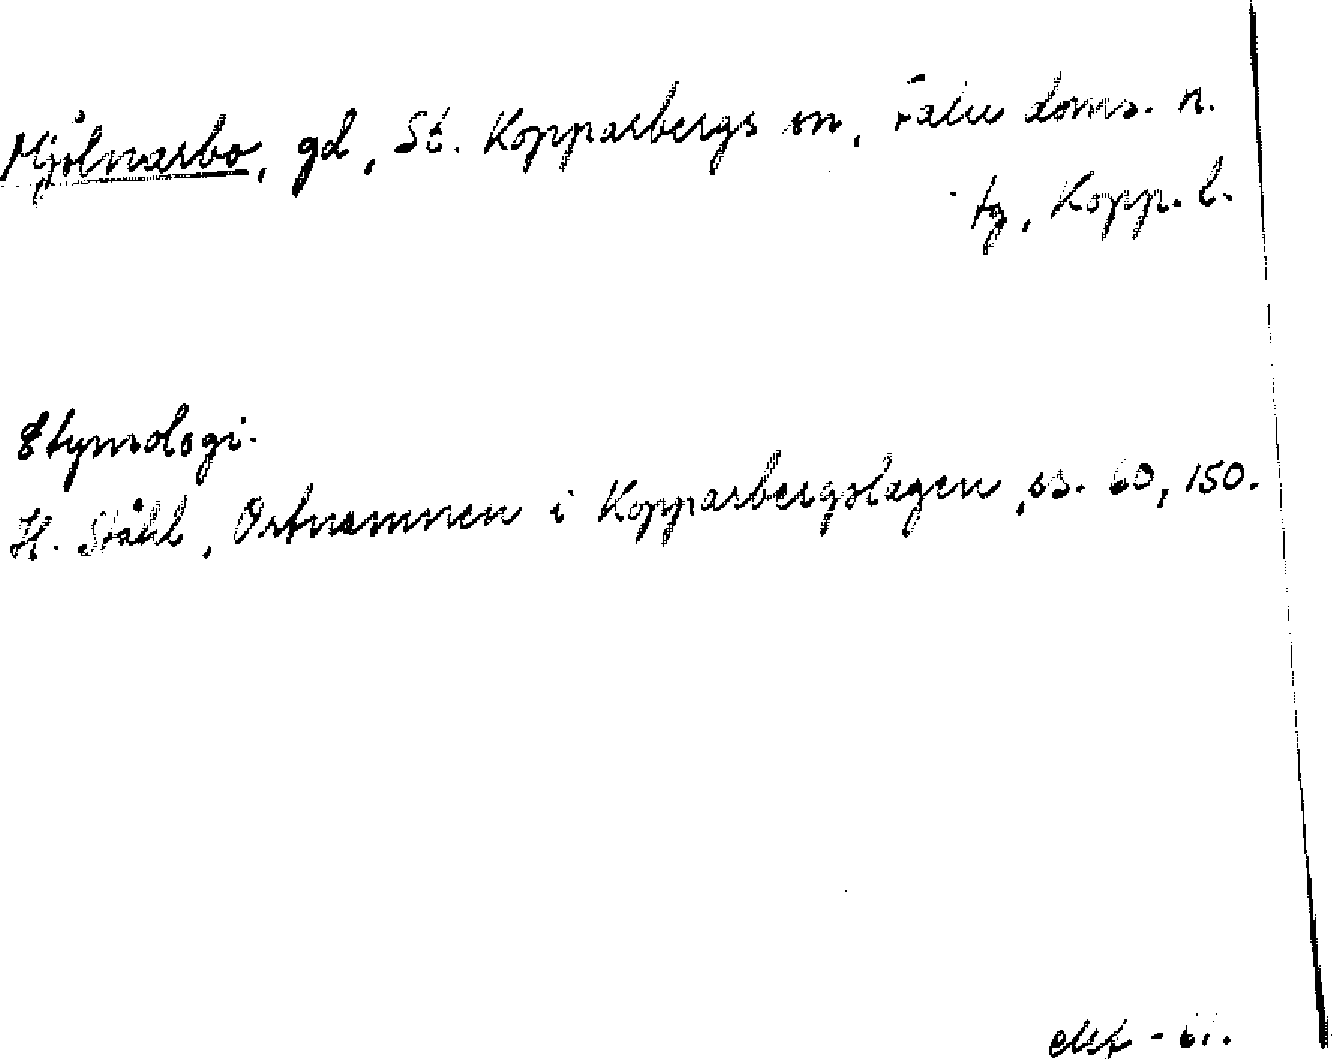 Mjölnarbo, gd, St. Kopparbergs sn, Falu doms. n.
tg, Kopp. l.
Etymologi.
H. Ståhl, Ortnamnen i Kopparbergslagen, ss. 60, 150.
- 61.